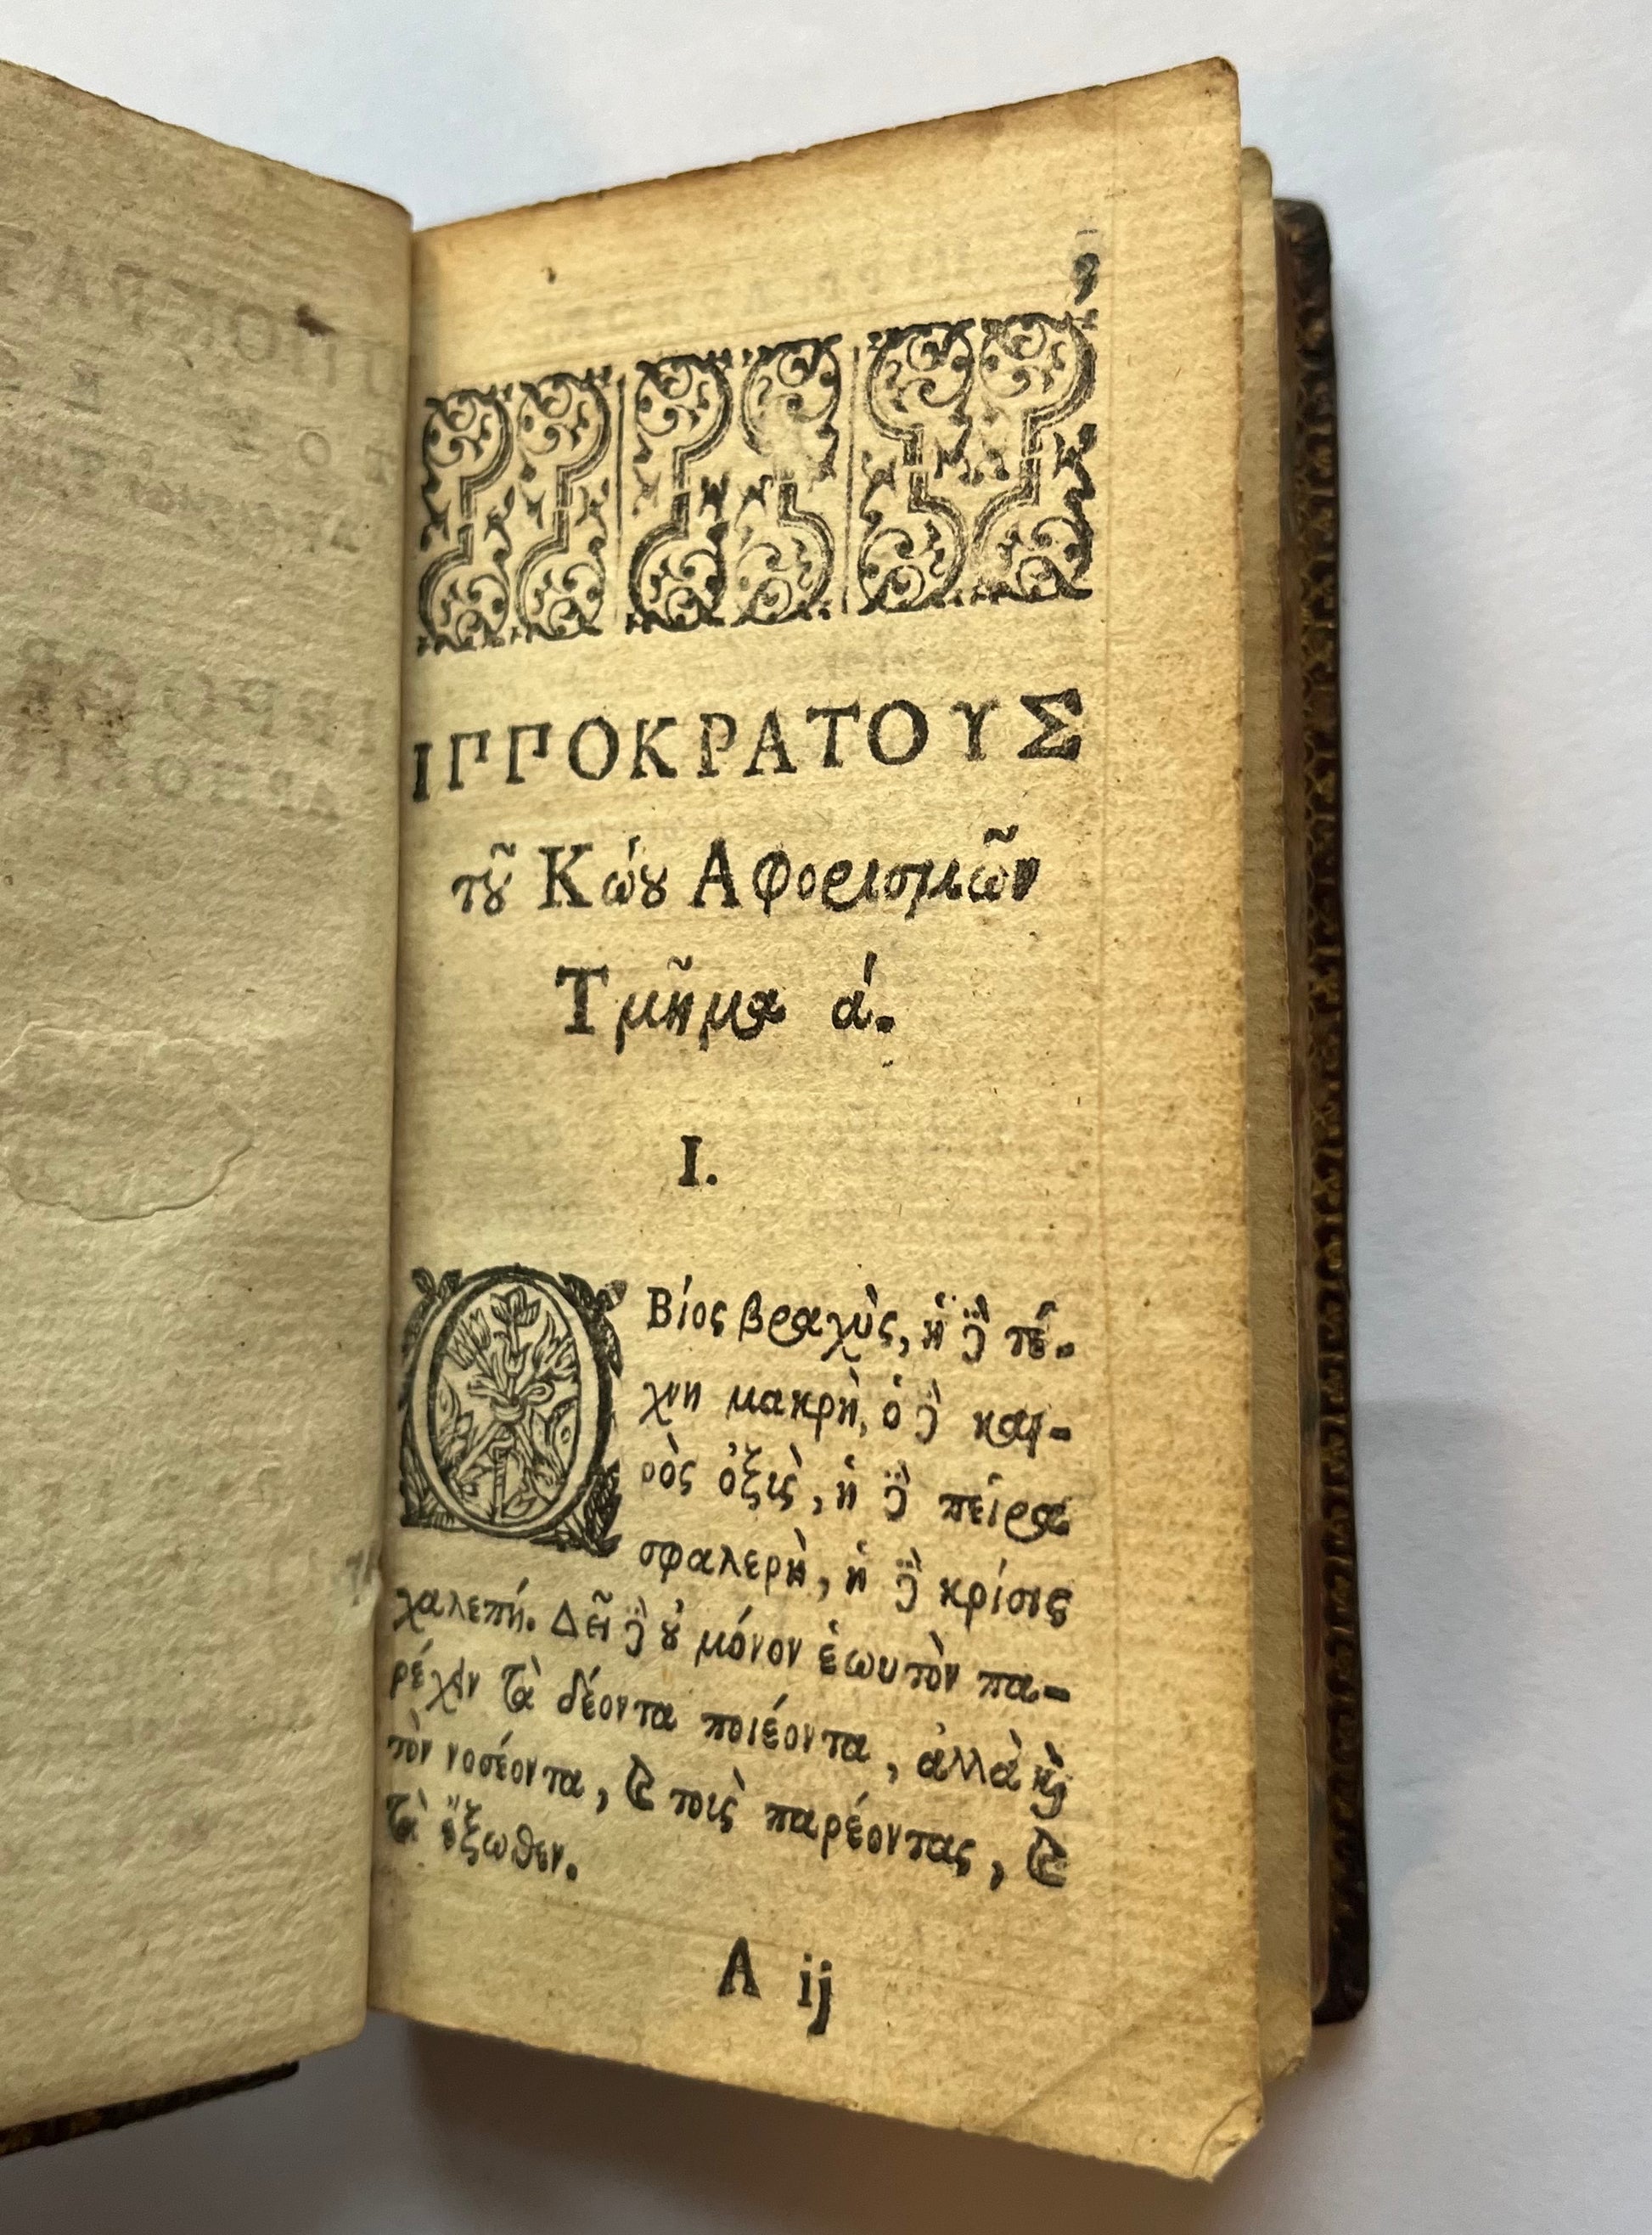 ΙΠΠΟΚΡΑΤΟΥΣ
τȣ͂ Κώȣ Αφορισμῶν
Τμῆμα ά.
I.
Ο Βίος βραχὺς, ἡ ϳ̔̀ τέ-
χνη μακρὴ, ὁ ϳ̔̀ και-
ρὸς ὀξὺς, ἡ ϳ̔̀ πεῖρα
σφαλερὴ, ἡ ϳ̔̀ κρίσις
χαλεπή. Δεῖ ϳ̔̀ ȣ̓ μόνον ἑωυτὸν πα-
ρέχειν τὰ δέοντα ποιέοντα, ἀλλὰ ϗ̀
τὸν νοσέοντα, ϗ τοὺς παρέοντας, ϗ
τὰ ἔξωθεν.
A ij